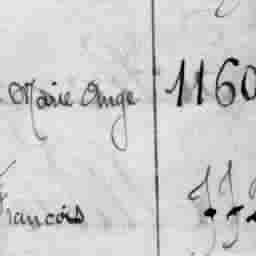 Marie Ange 1160
Francois